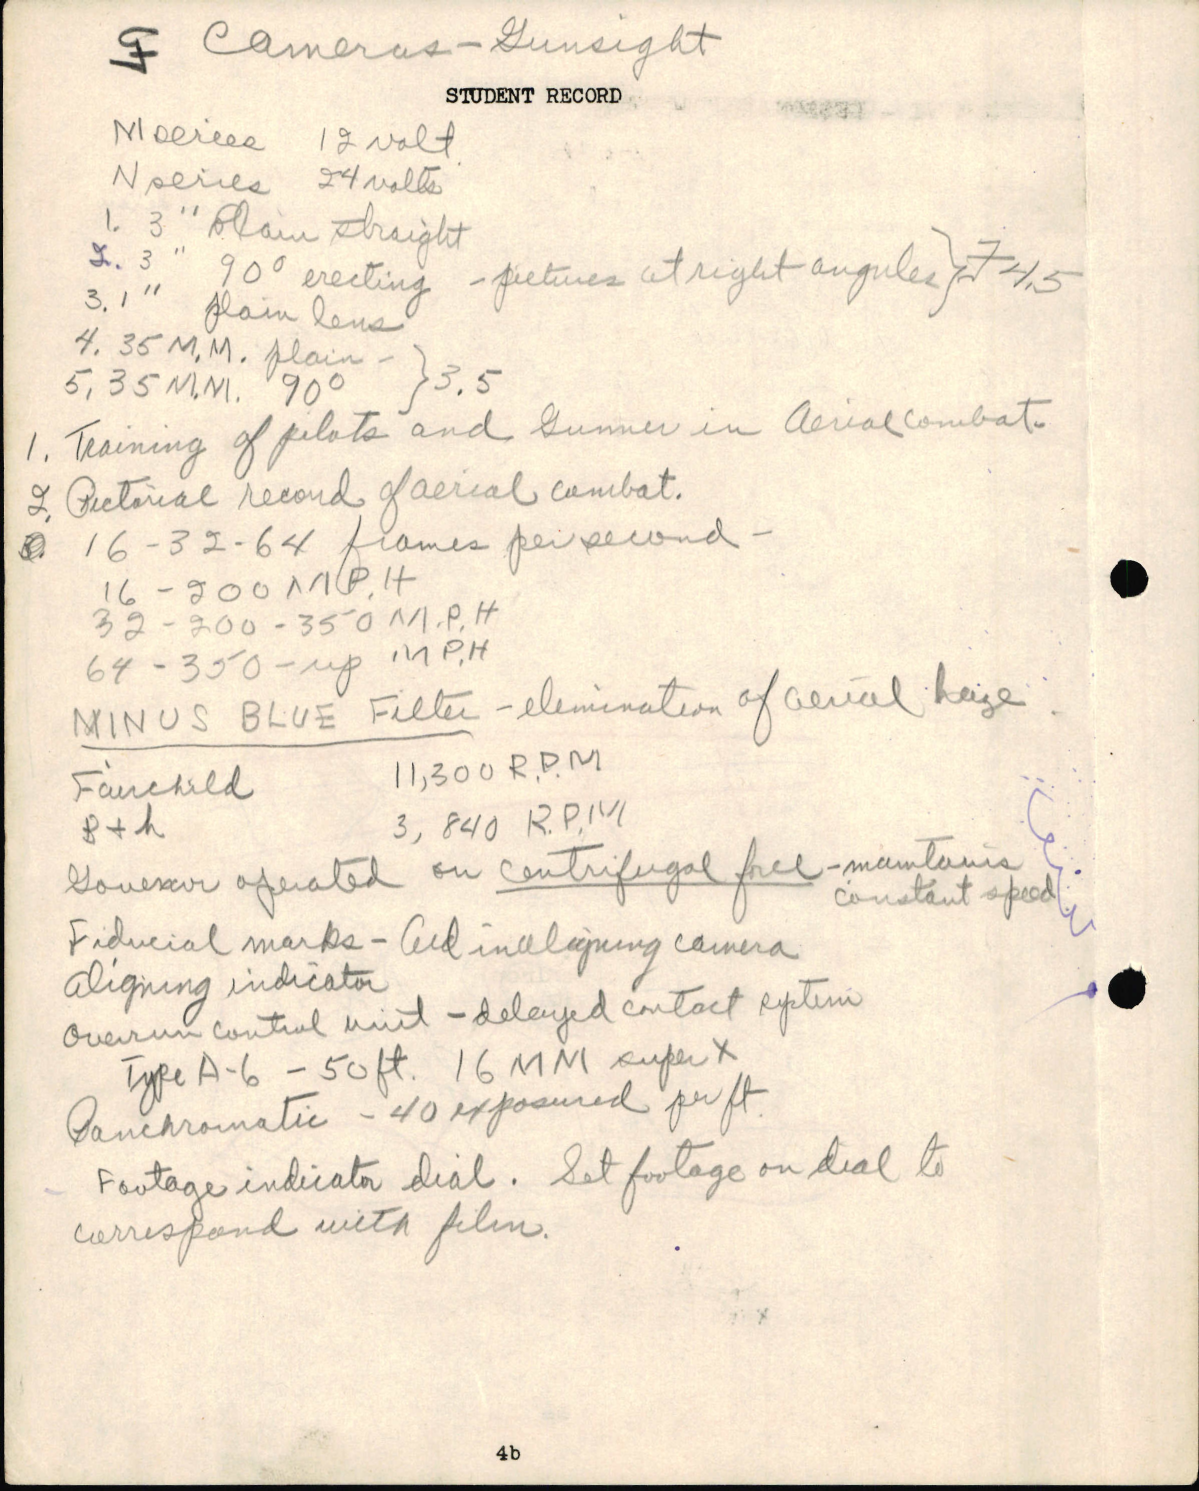 G Cameras - Gunsight
STUDENT RECORD
M series 12 volt
N series 24 volts
1. 3" plain straight
2. 3" 90° erecting - pictures at right angules } F 4.5
3. 1" plain lens
4. 35 M.M. plain -
5. 35 M.M. 90° } 3.5
1. Training of pilots and Gunner in Aerial combat.
2. Pictorial record of aerial combat.
16 - 32 - 64 frames per second -
16 - 200 M.P.H
32 - 200 - 350 M.P.H
64 - 350 - up M P.H
MINUS BLUE Filter - elimination of aerial haze
Fairchild 11,300 R.P.M
B + h 3,840 R.P.M
Govenor operated on centrifugal force - maintains
constant speed
Fiducial marks - Aid in aligning camera
Aligning indicator
Overrun control unit - delayed contact system
Type A-6 - 50 ft. 16 MM super X
Panchromatic - 40 exposured per ft.
Footage indicator dial. Set footage on dial to
correspond with film.
4b